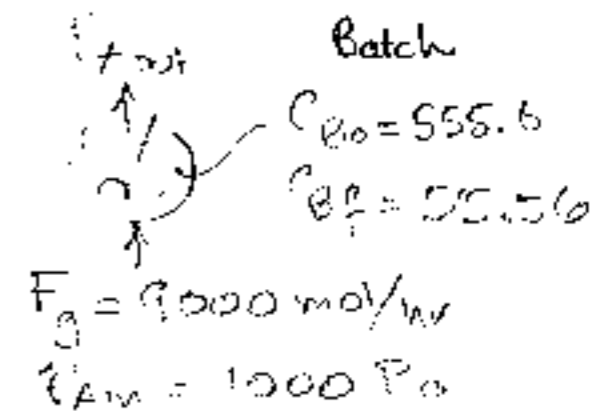 Batch
C_B0 = 555.6
C_Bf = 55.56
F_g = 9000 mol/hr
P_Ain = 1000 Pa